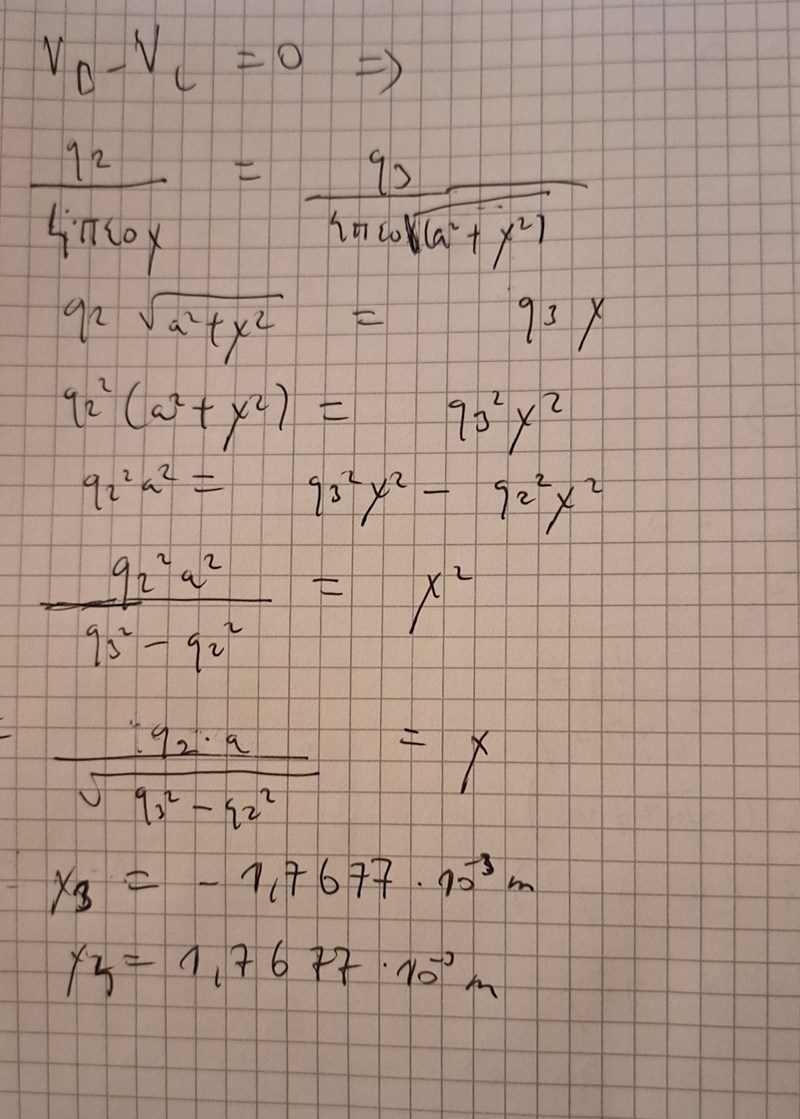 V_D - V_C = 0 =>
q2 / (4·πε0 x) = q3 / (4πε0 √(a² + x²))
q2 √(a² + x²) = q3 x
q2² (a² + x²) = q3² x²
q2² a² = q3² x² - q2² x²
q2² a² / (q3² - q2²) = x²
= q2 · a / √(q3² - q2²) = x
x3 = - 1,7677 · 10⁻³ m
x4 = 1,7677 · 10⁻³ m